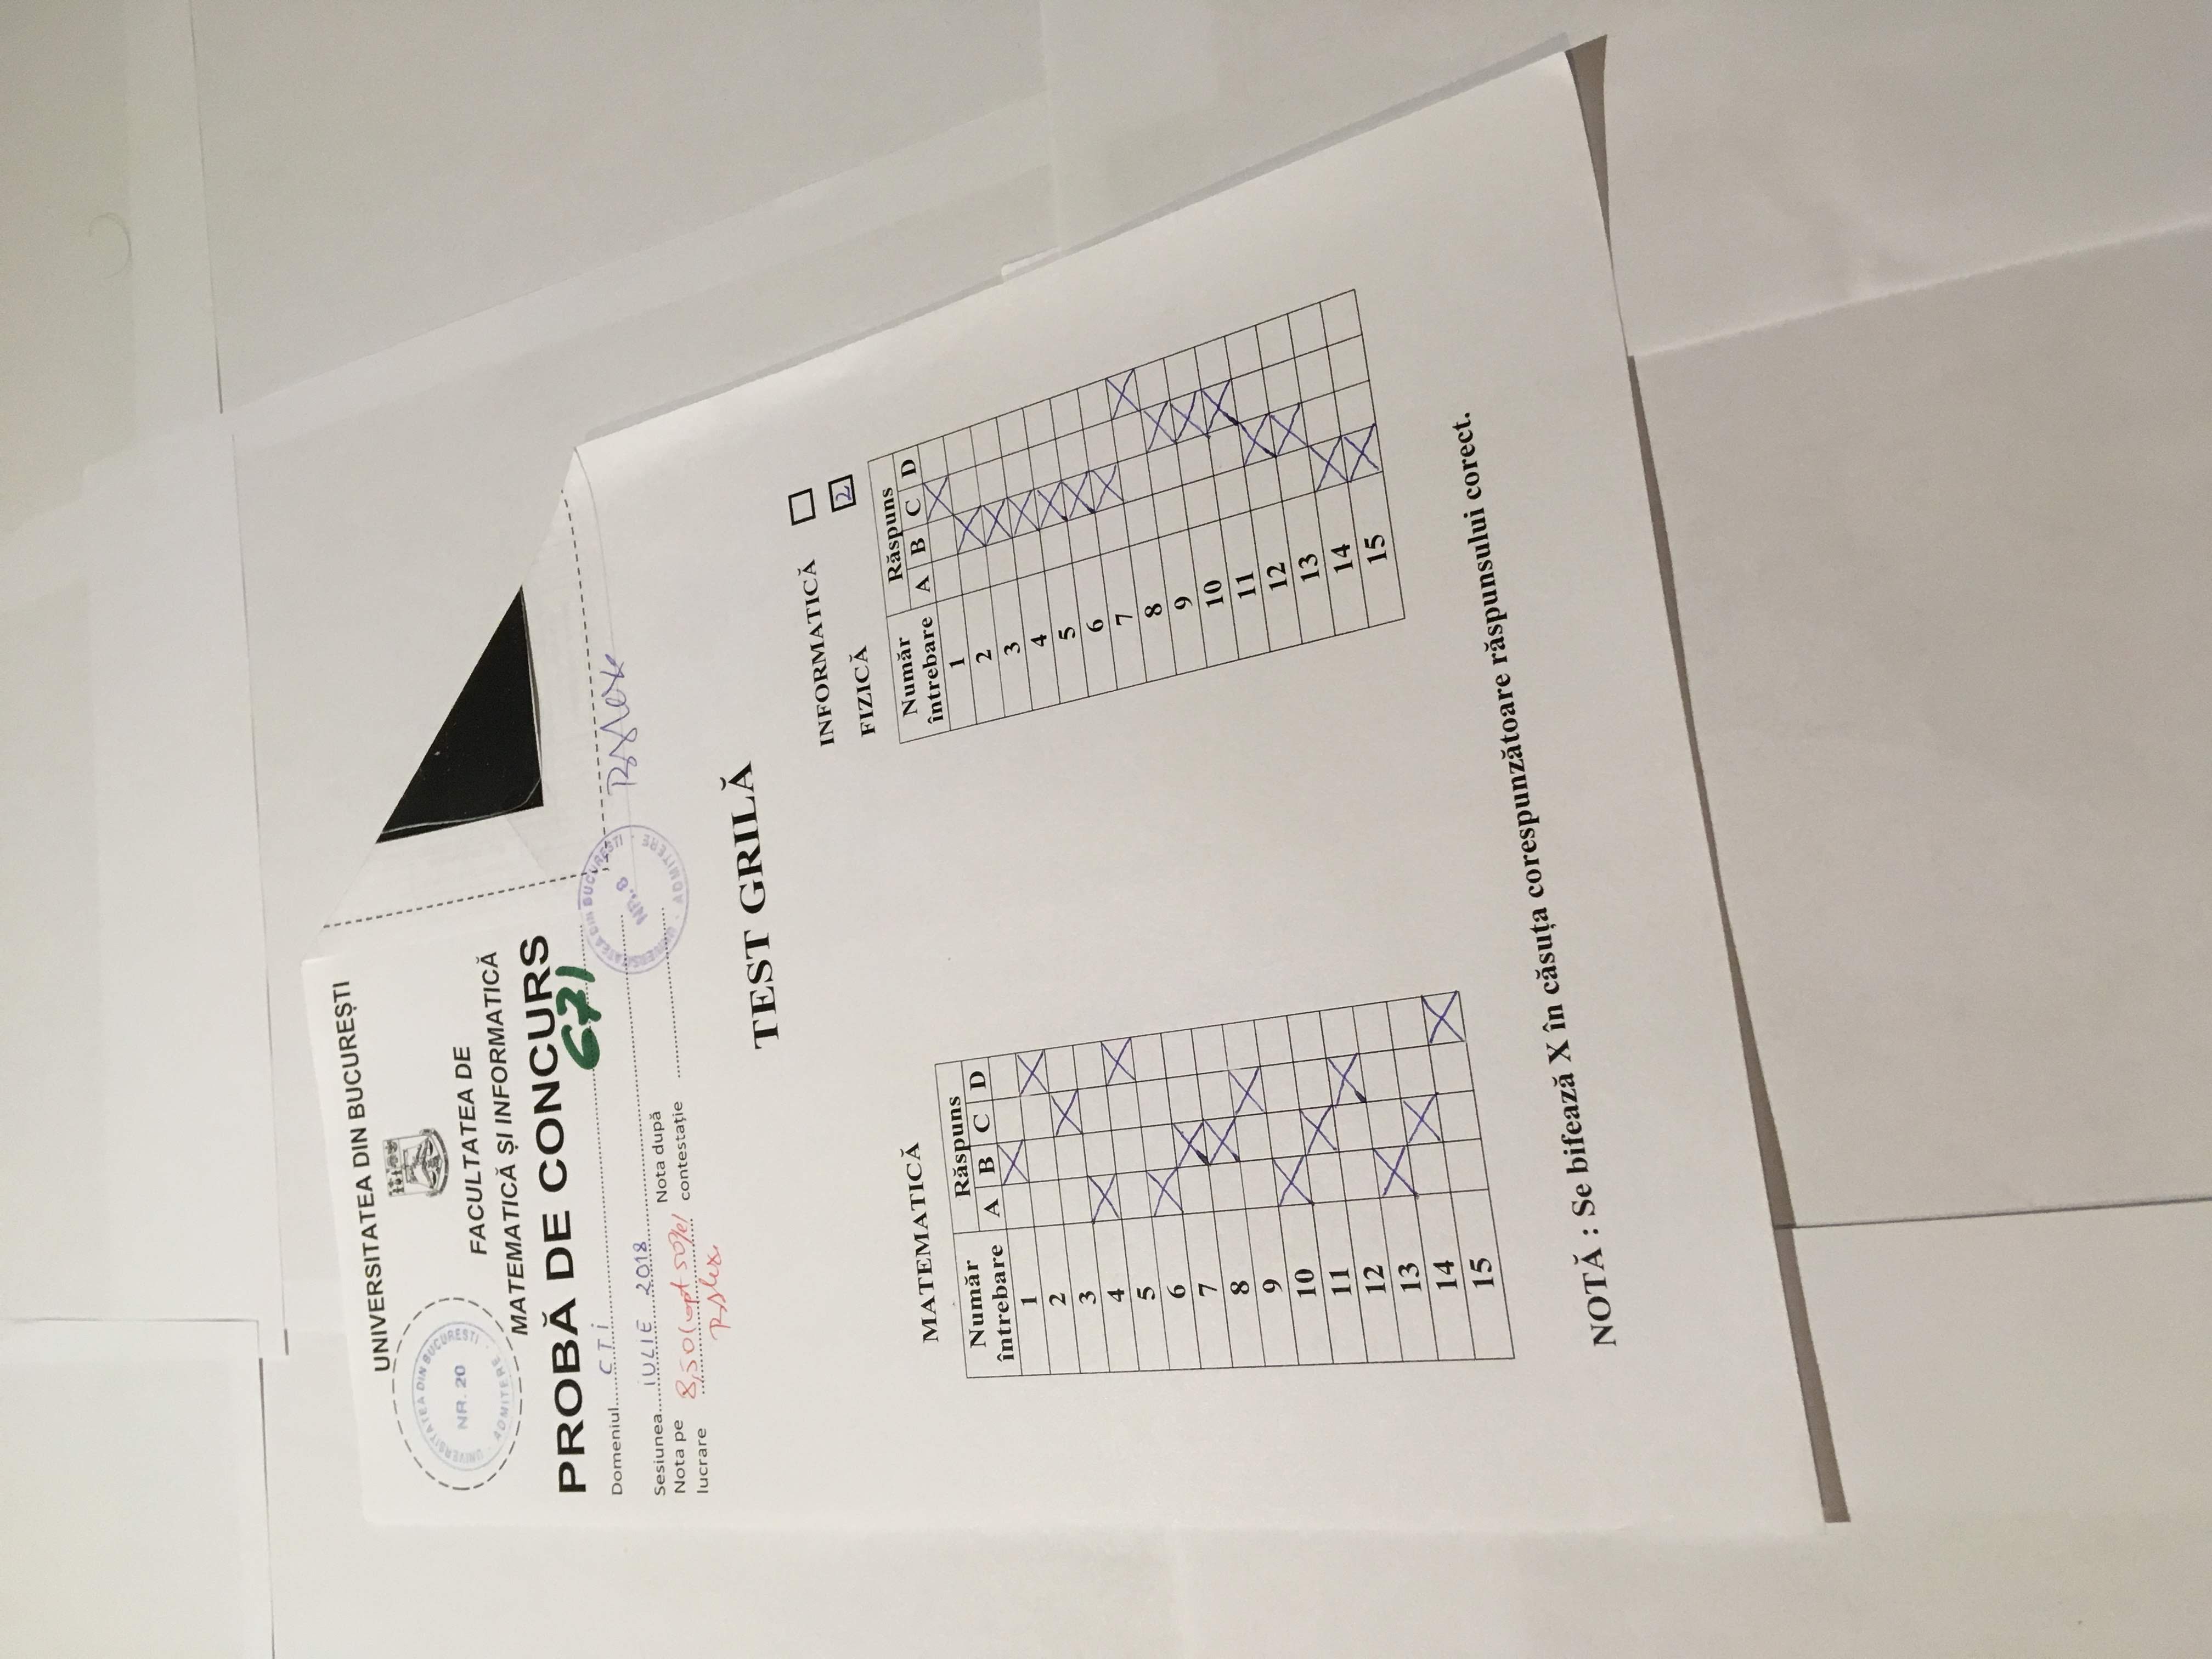 UNIVERSITATEA DIN BUCUREȘTI
UNIVERSITATEA DIN BUCUREȘTI
NR. 20
ADMITERE
FACULTATEA DE
MATEMATICĂ ȘI INFORMATICĂ
PROBĂ DE CONCURS
671
Domeniul CTI
Sesiunea IULIE 2018
Nota pe lucrare 8,50 (opt 50%)
Nota după contestație
UNIVERSITATEA DIN BUCUREȘTI
NR. 8
ADMITERE
TEST GRILĂ
INFORMATICĂ
FIZICĂ 2
MATEMATICĂ
Număr întrebare Răspuns
A B C D
1 X
2 X
3 X
4 X
5 X
6 X
7 X
8 X
9 X
10 X
11 X
12 X
13 X
14 X
15 X
Număr întrebare Răspuns
A B C D
1 X
2 X
3 X
4 X
5 X
6 X
7 X
8 X
9 X
10 X
11 X
12 X
13 X
14 X
15 X
NOTĂ : Se bifează X în căsuța corespunzătoare răspunsului corect.